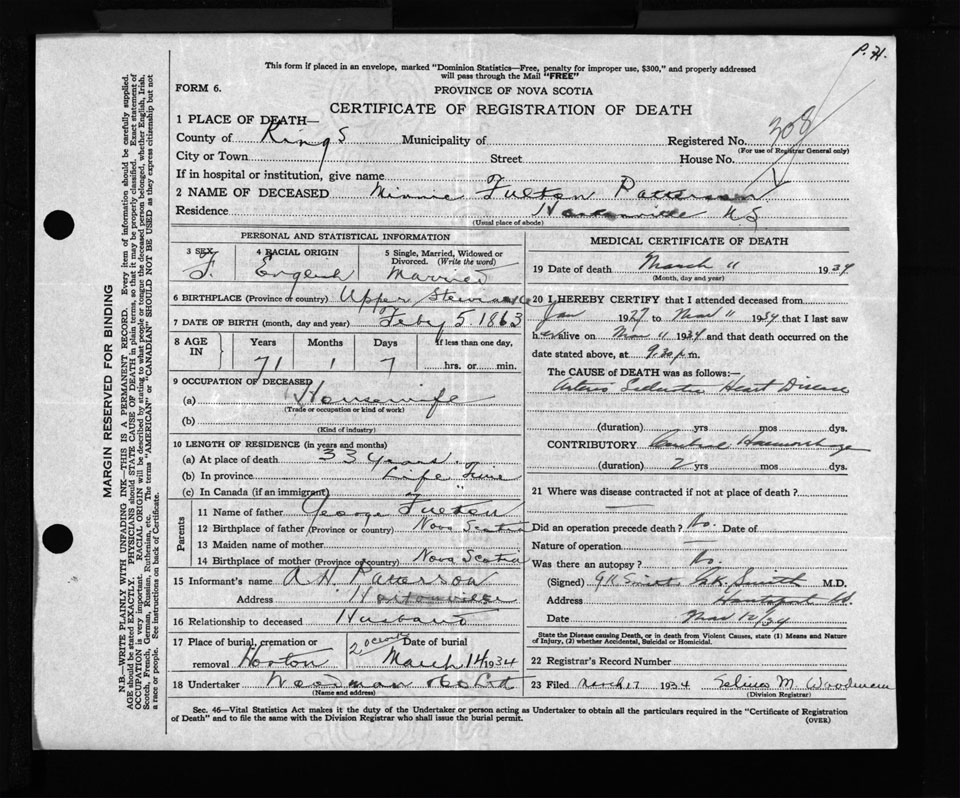 P.H.
This form if placed in an envelope, marked "Dominion Statistics—Free, penalty for improper use, $300," and properly addressed
will pass through the Mail "FREE"
FORM 6.
PROVINCE OF NOVA SCOTIA
CERTIFICATE OF REGISTRATION OF DEATH
1 PLACE OF DEATH—
County of Kings Municipality of Registered No. 308
(For use of Registrar General only)
City or Town Street House No.
If in hospital or institution, give name
2 NAME OF DECEASED Minnie Fulton Patterson
Residence Hortonville N.S
(Usual place of abode)
PERSONAL AND STATISTICAL INFORMATION
3 SEX F.
4 RACIAL ORIGIN English
5 Single, Married, Widowed or Divorced. (Write the word) Married
6 BIRTHPLACE (Province or country) Upper Stewiacke
7 DATE OF BIRTH (month, day and year) Feby 5. 1863
8 AGE IN Years Months Days If less than one day,
71 1 7 hrs. or min.
9 OCCUPATION OF DECEASED
(a) Housewife
(Trade or occupation or kind of work)
(b)
(Kind of industry)
10 LENGTH OF RESIDENCE (in years and months)
(a) At place of death 33 years
(b) In province Life Time
(c) In Canada (if an immigrant) "
Parents
11 Name of father George Fulton
12 Birthplace of father (Province or country) Nova Scotia
13 Maiden name of mother
14 Birthplace of mother (Province or country) Nova Scotia
15 Informant's name A.H. Patterson
Address Hortonville
16 Relationship to deceased Husband
17 Place of burial, cremation or removal Horton
2 oclock
Date of burial March 14 1934
18 Undertaker
(Name and address)
MEDICAL CERTIFICATE OF DEATH
19 Date of death March 11 1934
(Month, day and year)
20 I HEREBY CERTIFY that I attended deceased from
Jan 1927 to Mar 11 1934 that I last saw
her alive on Mar 11 1934 and that death occurred on the
date stated above, at 9.30 p.m.
The CAUSE of DEATH was as follows:—
Heart Disease
(duration) yrs mos dys.
CONTRIBUTORY Haemorrhage
(duration) 2 yrs mos dys.
21 Where was disease contracted if not at place of death?
Did an operation precede death? No. Date of
Nature of operation —
Was there an autopsy? No.
(Signed) Smith M.D.
Address Hantsport
Date Mar 12/34
State the Disease causing Death, or in death from Violent Causes, state (1) Means and Nature
of Injury, (2) whether Accidental, Suicidal or Homicidal.
22 Registrar's Record Number
23 Filed March 17 1934 M. Woodman
(Division Registrar)
Sec. 46—Vital Statistics Act makes it the duty of the Undertaker or person acting as Undertaker to obtain all the particulars required in the "Certificate of Registration
of Death" and to file the same with the Division Registrar who shall issue the burial permit.
(OVER)
MARGIN RESERVED FOR BINDING
N.B.—WRITE PLAINLY WITH UNFADING INK—THIS IS A PERMANENT RECORD. Every item of information should be carefully supplied.
AGE should be stated EXACTLY. PHYSICIANS should STATE CAUSE OF DEATH in plain terms, so that it may be properly classified. Exact statement of
OCCUPATION is very important. RACIAL ORIGIN will be described by stating to what people or tongue the deceased person belonged, whether English, Irish,
Scotch, French, German, Russian, Ruthenian, etc. The terms "AMERICAN" or "CANADIAN" SHOULD NOT BE USED as they express citizenship but not
a race or people. See instructions on back of Certificate.